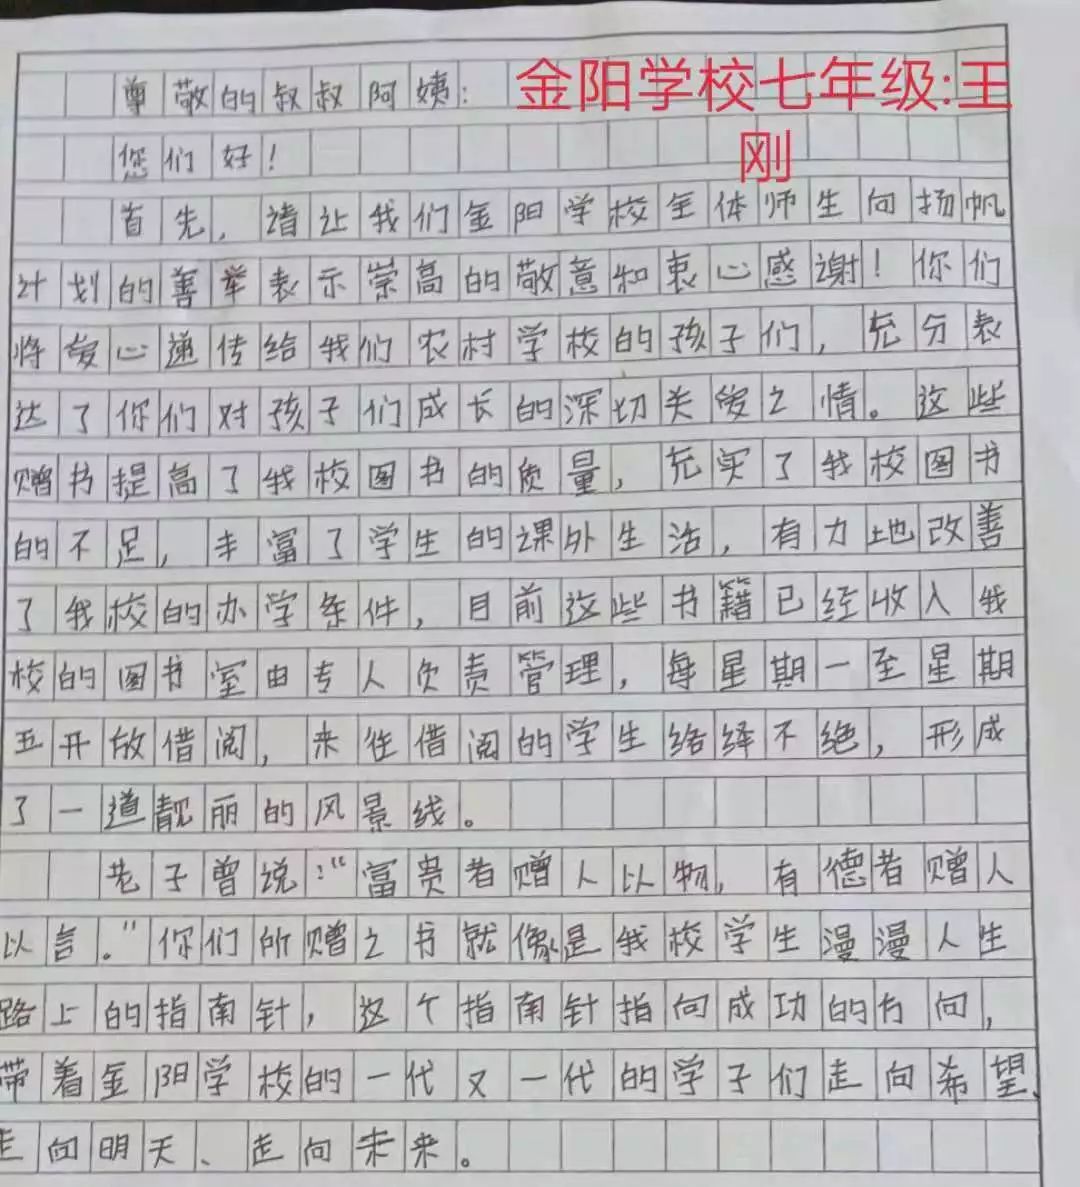 尊敬的叔叔阿姨：
金阳学校七年级:王
刚
您们好！
首先，请让我们金阳学校全体师生向扬帆
计划的善举表示崇高的敬意和衷心感谢！你们
将爱心递传给我们农村学校的孩子们，充分表
达了你们对孩子们成长的深切关爱之情。这些
赠书提高了我校图书的质量，充实了我校图书
的不足，丰富了学生的课外生活，有力地改善
了我校的办学条件，目前这些书籍已经收入我
校的图书室由专人负责管理，每星期一至星期
五开放借阅，来往借阅的学生络绎不绝，形成
了一道靓丽的风景线。
老子曾说：“富贵者赠人以物，有德者赠人
以言。”你们所赠之书就像是我校学生漫漫人生
路上的指南针，这个指南针指向成功的方向，
带着金阳学校的一代又一代的学子们走向希望、
走向明天、走向未来。